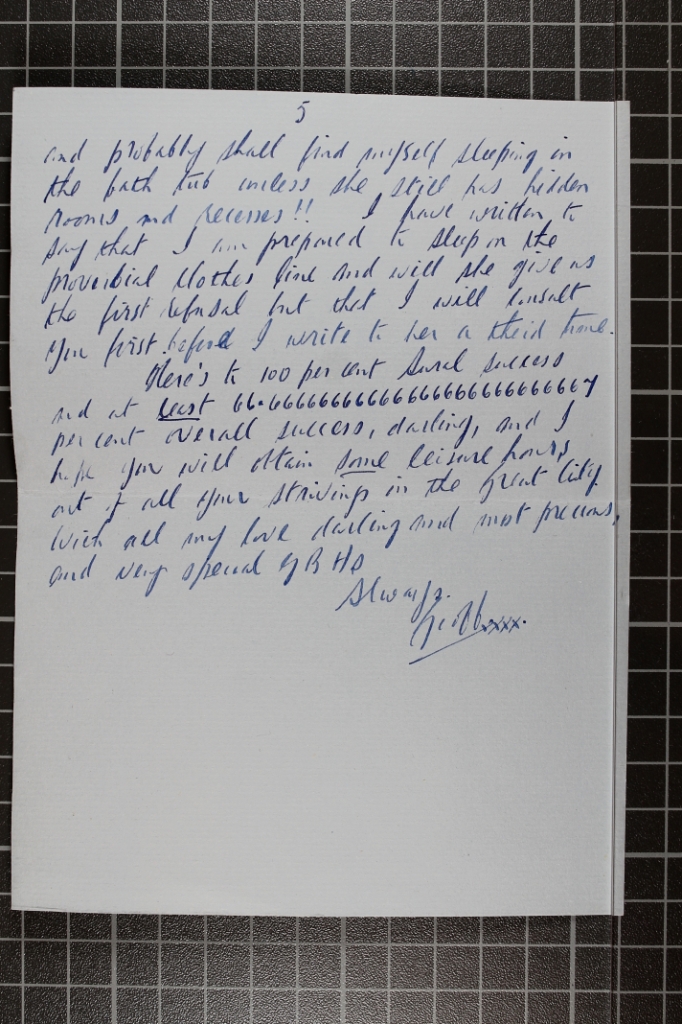 5
and probably shall find myself sleeping in
the bath tub unless she still has hidden
rooms and recesses!! I have written to
say that I am prepared to sleep on the
proverbial clothes line and will she give us
the first refusal but that I will consult
you first before I write to her a third time.
Here's to 100 per cent Sural success
and at least 66.666666666666666666666666667
per cent overall success, darling, and I
hope you will obtain some leisure hours
out of all your strivings in the Great City.
With all my love darling and most precious,
and very special GBHs
Always.
Geoff xxxx.